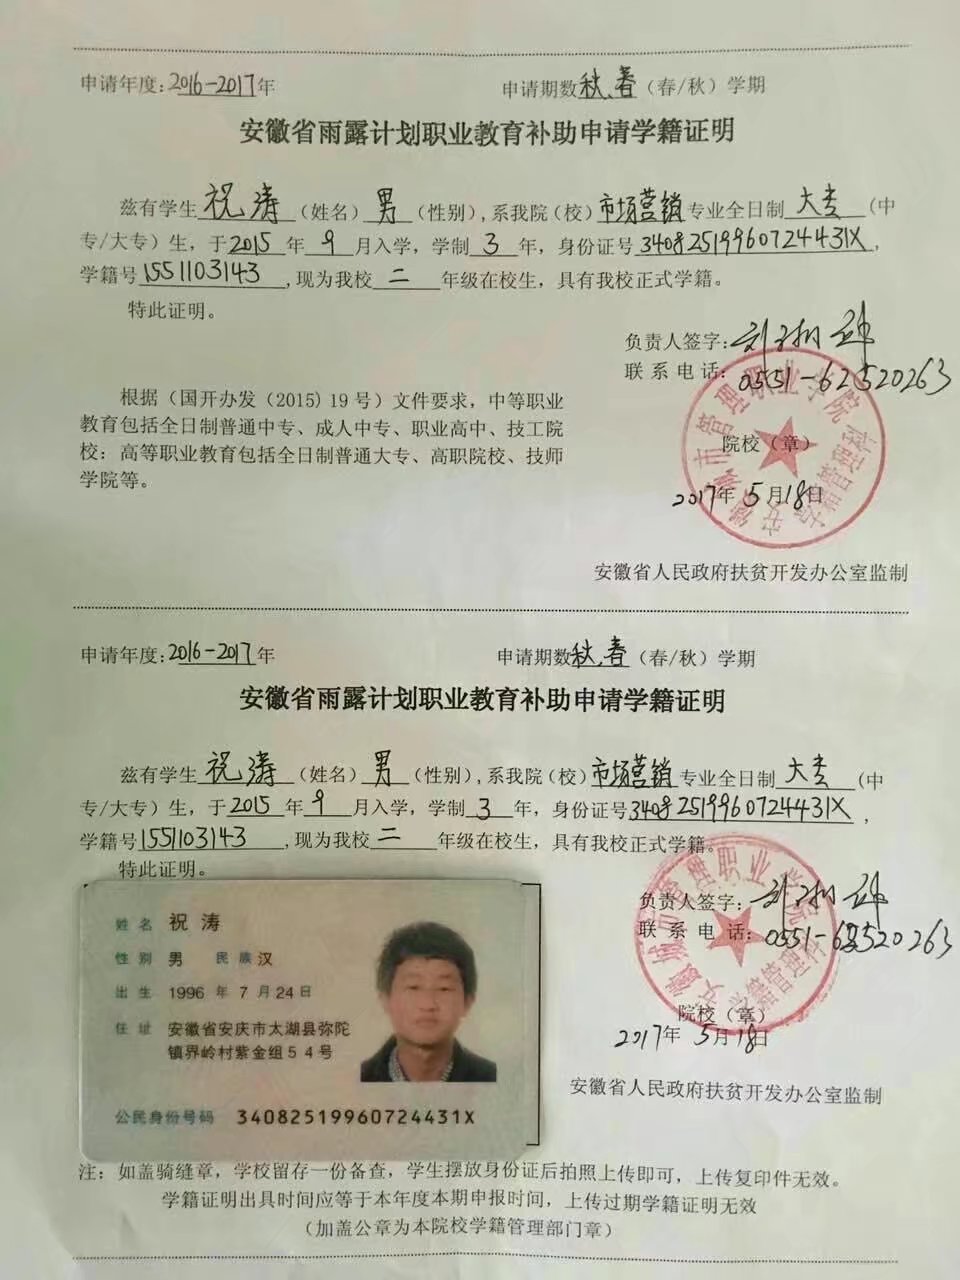 申请年度:2016-2017年 申请期数秋、春（春/秋）学期
安徽省雨露计划职业教育补助申请学籍证明
兹有学生祝涛（姓名）男（性别）,系我院（校）市场营销专业全日制大专（中
专/大专）生，于2015年9月入学，学制3年，身份证号34082519960724431X，
学籍号1551103143,现为我校二年级在校生，具有我校正式学籍。
特此证明。
负责人签字:
联系电话:0551-62520263
根据（国开办发（2015）19号）文件要求，中等职业
教育包括全日制普通中专、成人中专、职业高中、技工院
校：高等职业教育包括全日制普通大专、高职院校、技师
学院等。
安徽城市管理职业学院
学籍管理科
院校（章）
2017年5月18日
安徽省人民政府扶贫开发办公室监制
申请年度:2016-2017年 申请期数秋、春（春/秋）学期
安徽省雨露计划职业教育补助申请学籍证明
兹有学生祝涛（姓名）男（性别）,系我院（校）市场营销专业全日制大专(中
专/大专）生，于2015年9月入学，学制3年，身份证号34082519960724431X，
学籍号1551103143,现为我校二年级在校生，具有我校正式学籍。
特此证明。
负责人签字:
联系电话:0551-62520263
安徽城市管理职业学院
学籍管理科
院校（章）
2017年5月18日
安徽省人民政府扶贫开发办公室监制
姓名 祝涛
性别 男 民族 汉
出生 1996年7月24日
住址 安徽省安庆市太湖县弥陀
镇界岭村紫金组54号
公民身份号码 34082519960724431X
注：如盖骑缝章，学校留存一份备查，学生摆放身份证后拍照上传即可，上传复印件无效。
学籍证明出具时间应等于本年度本期申报时间，上传过期学籍证明无效
（加盖公章为本院校学籍管理部门章）